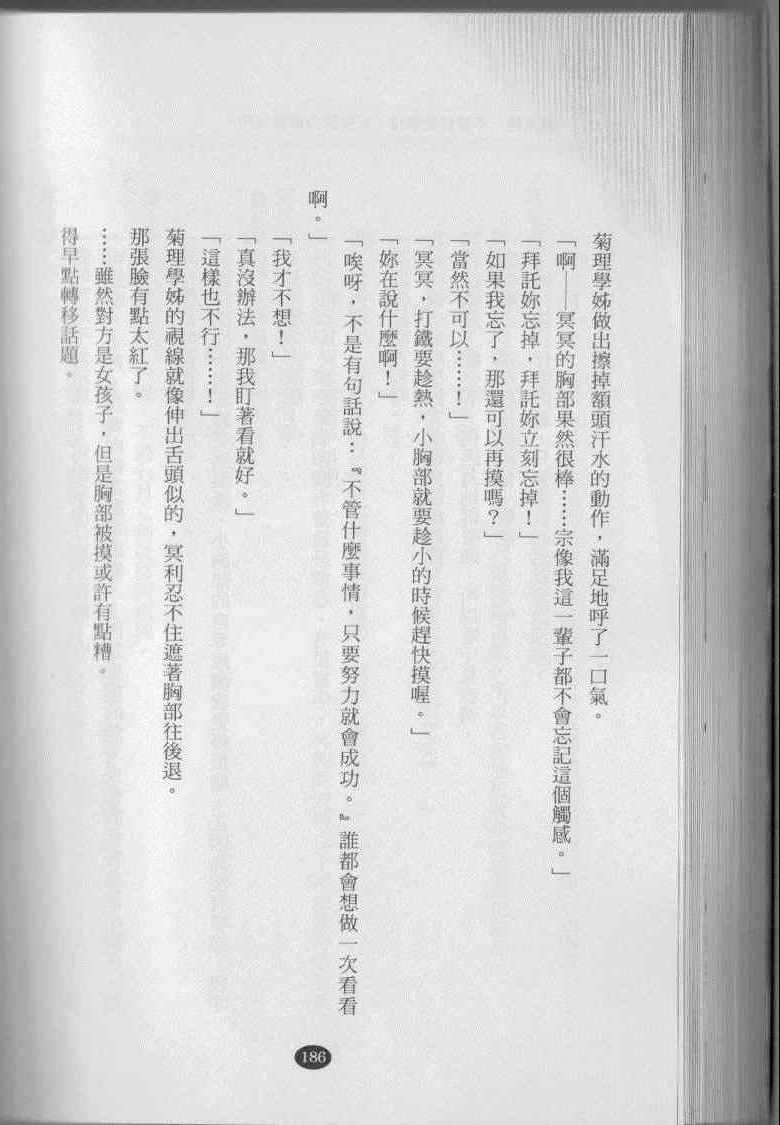 菊理學姊做出擦掉額頭汗水的動作，滿足地呼了一口氣。
「啊——冥冥的胸部果然很棒……宗像我這一輩子都不會忘記這個觸感。」
「拜託妳忘掉，拜託妳立刻忘掉！」
「如果我忘了，那還可以再摸嗎？」
「當然不可以……！」
「冥冥，打鐵要趁熱，小胸部就要趁小的時候趕快摸喔。」
「妳在說什麼啊！」
「唉呀，不是有句話說：『不管什麼事情，只要努力就會成功。』誰都會想做一次看看
啊。」
「我才不想！」
「真沒辦法，那我盯著看就好。」
「這樣也不行……！」
菊理學姊的視線就像伸出舌頭似的，冥利忍不住遮著胸部往後退。
那張臉有點太紅了。
……雖然對方是女孩子，但是胸部被摸或許有點糟。
得早點轉移話題。
186